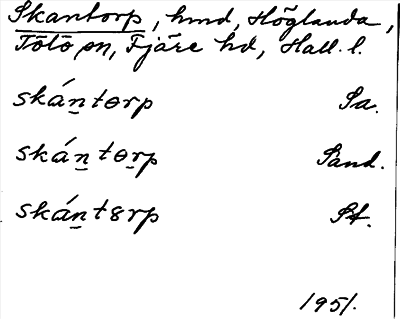 Skantorp, hmd, Höglanda,
Tölö sn, Fjäre hd, Hall. l.
skán̲tɵrp Sa.
skán̲tɵr̲p Sand.
skán̲tɞrp St.
1951.